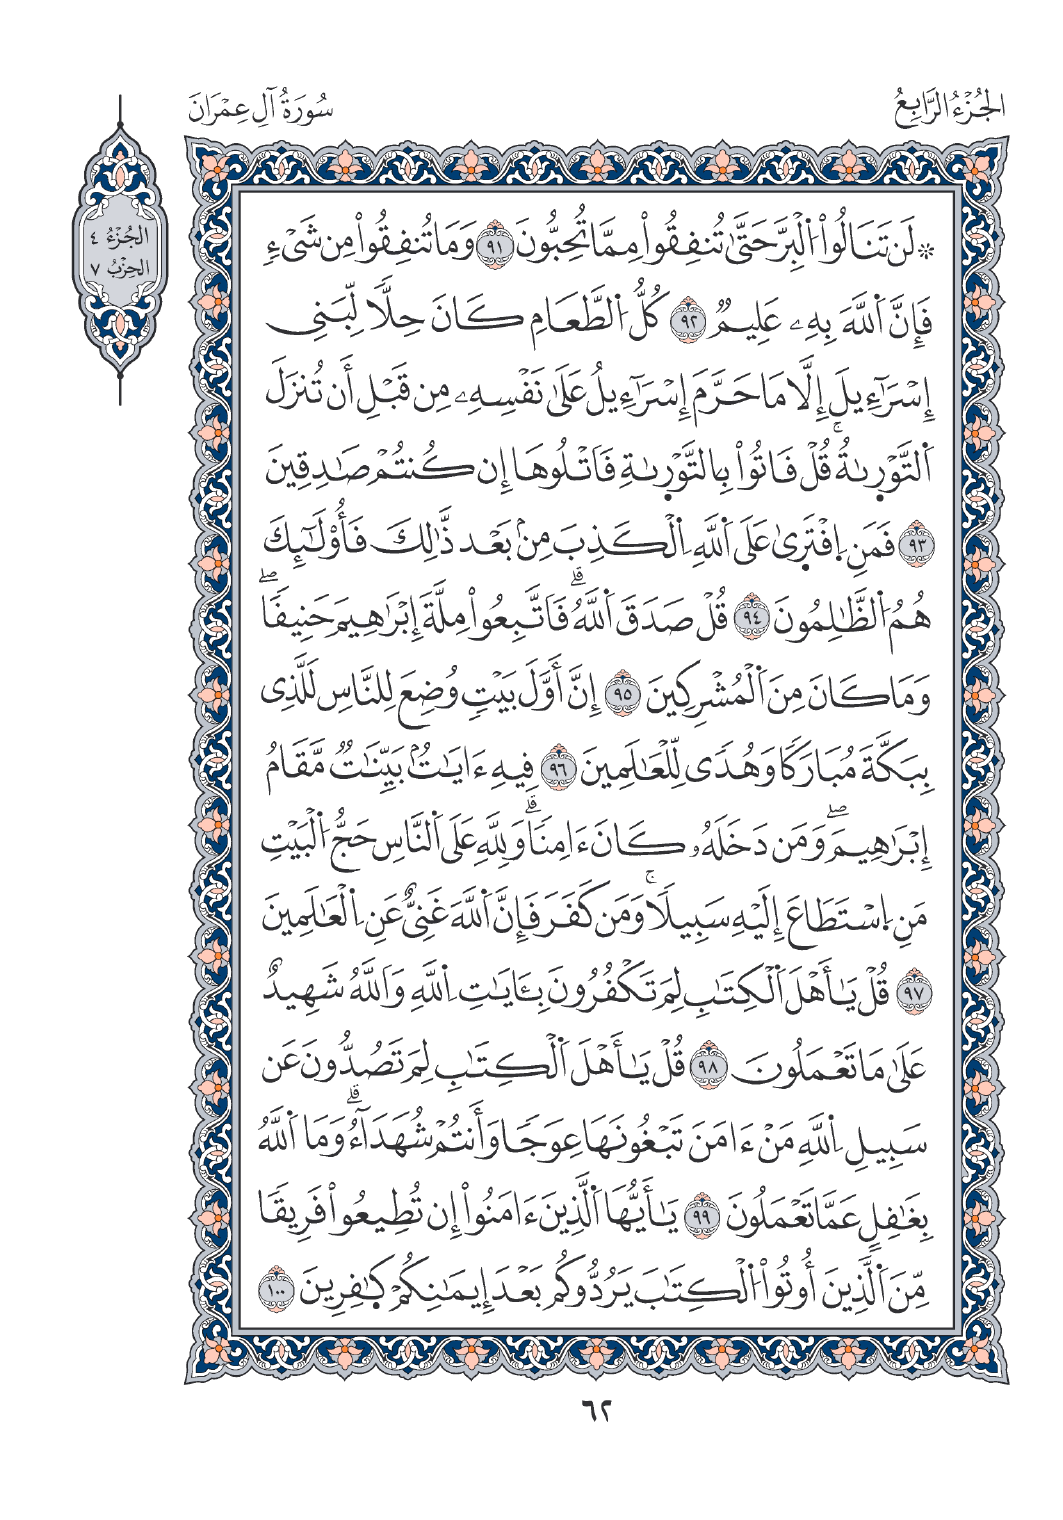 الجُزْءُ الرَّابِعُ
سُورَةُ آلِ عِمْرَانَ
الجُزْءُ ٤
الحِزْبُ ٧
۞ لَن تَنَالُوا۟ اُ۬لْبِرَّ حَتَّىٰ تُنفِقُوا۟ مِمَّا تُحِبُّونَ ٩١ وَمَا تُنفِقُوا۟ مِن شَىْءٍ
فَإِنَّ اَ۬للَّهَ بِهِۦ عَلِيمٌ ٩٢ كُلُّ اُ۬لطَّعَامِ كَانَ حِلًّا لِّبَنِى
إِسْرَآءِيلَ إِلَّا مَا حَرَّمَ إِسْرَآءِيلُ عَلَىٰ نَفْسِهِۦ مِن قَبْلِ أَن تُنزَلَ
اَ۬لتَّوْرِىٰةُۚ قُلْ فَاتُوا۟ بِالتَّوْرِىٰةِ فَاتْلُوهَا إِن كُنتُمْ صَٰدِقِينَ
٩٣ فَمَنِ اِ۪فْتَرِىٰ عَلَى اَ۬للَّهِ اِ۬لْكَذِبَ مِنۢ بَعْد ذَّٰلِكَ فَأُو۟لَٰٓئِكَ
هُمُ اُ۬لظَّٰلِمُونَ ٩٤ قُلْ صَدَقَ اَ۬للَّهُۗ فَاتَّبِعُوا۟ مِلَّةَ إِبْرَٰهِيمَ حَنِيفًاۖ
وَمَا كَانَ مِنَ اَ۬لْمُشْرِكِينَ ٩٥ إِنَّ أَوَّلَ بَيْتٍ وُضِعَ لِلنَّاسِ لَلَّذِى
بِبَكَّةَ مُبَارَكًا وَهُدًى لِّلْعَٰلَمِينَ ٩٦ فِيهِ ءَايَٰتُۢ بَيِّنَٰتٌ مَّقَامُ
إِبْرَٰهِيمَۖ وَمَن دَخَلَهُۥ كَانَ ءَامِنًاۗ وَلِلَّهِ عَلَى اَ۬لنَّاسِ حَجُّ اُ۬لْبَيْتِ
مَنِ اِ۪سْتَطَاعَ إِلَيْهِ سَبِيلًاۚ وَمَن كَفَرَ فَإِنَّ اَ۬للَّهَ غَنِىٌّ عَنِ اِ۬لْعَٰلَمِينَ
٩٧ قُلْ يَٰأَهْلَ اَ۬لْكِتَٰبِ لِمَ تَكْفُرُونَ بِـَٔايَٰتِ اِ۬للَّهِ وَاَ۬للَّهُ شَهِيدٌ
عَلَىٰ مَا تَعْمَلُونَ ٩٨ قُلْ يَٰأَهْلَ اَ۬لْكِتَٰبِ لِمَ تَصُدُّونَ عَن
سَبِيلِ اِ۬للَّهِ مَنْ ءَامَنَ تَبْغُونَهَا عِوَجًا وَأَنتُمْ شُهَدَآءُۗ وَمَا اَ۬للَّهُ
بِغَٰفِلٍ عَمَّا تَعْمَلُونَ ٩٩ يَٰأَيُّهَا اَ۬لَّذِينَ ءَامَنُوا۟ إِن تُطِيعُوا۟ فَرِيقًا
مِّنَ اَ۬لَّذِينَ أُوتُوا۟ اُ۬لْكِتَٰبَ يَرُدُّوكُم بَعْدَ إِيمَٰنِكُمْ كِٰفِرِينَ ١٠٠
٦٢